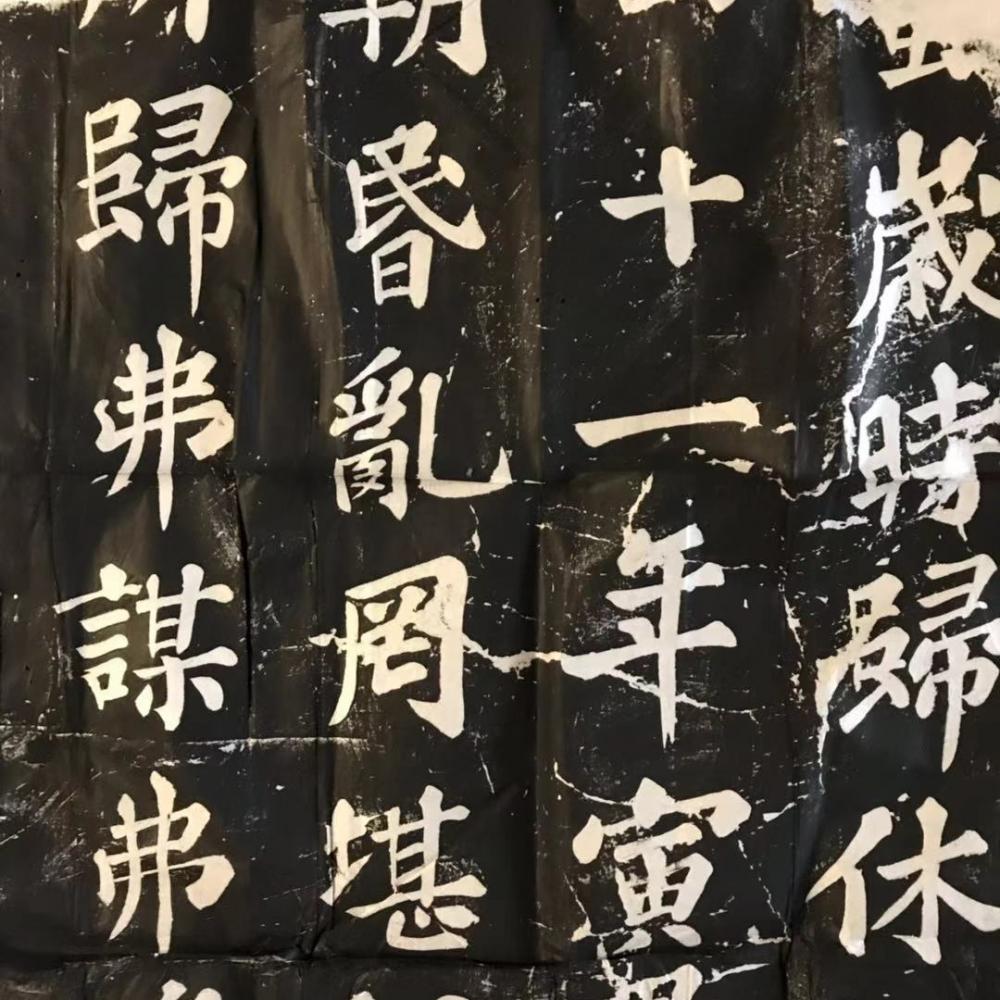 歲時歸休
十一年寅
朝昏亂罔堪
歸弗謀弗